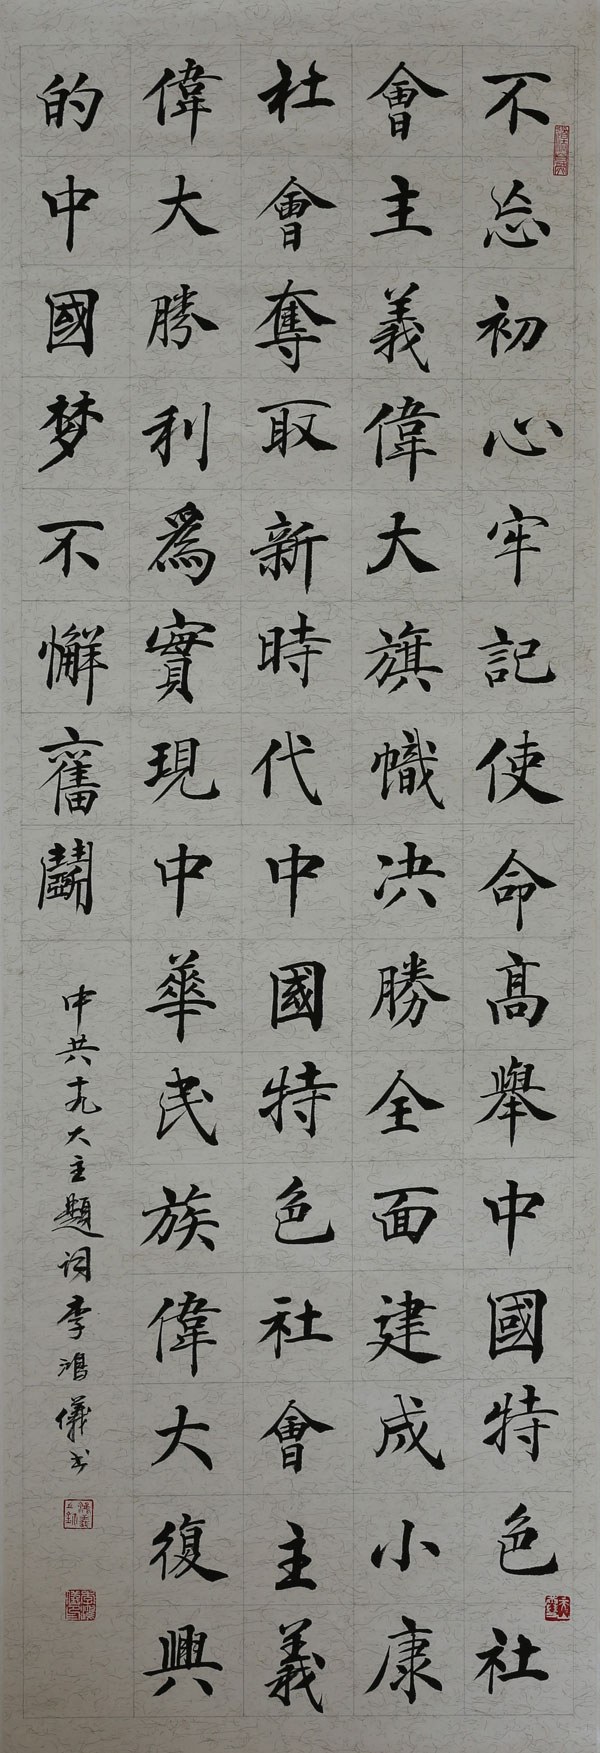 不忘初心牢記使命高舉中國特色社
會主義偉大旗幟决勝全面建成小康
社會奪取新時代中國特色社會主義
偉大勝利為實現中華民族偉大復興
的中國梦不懈奮鬭
中共十九大主題词李鴻儀书